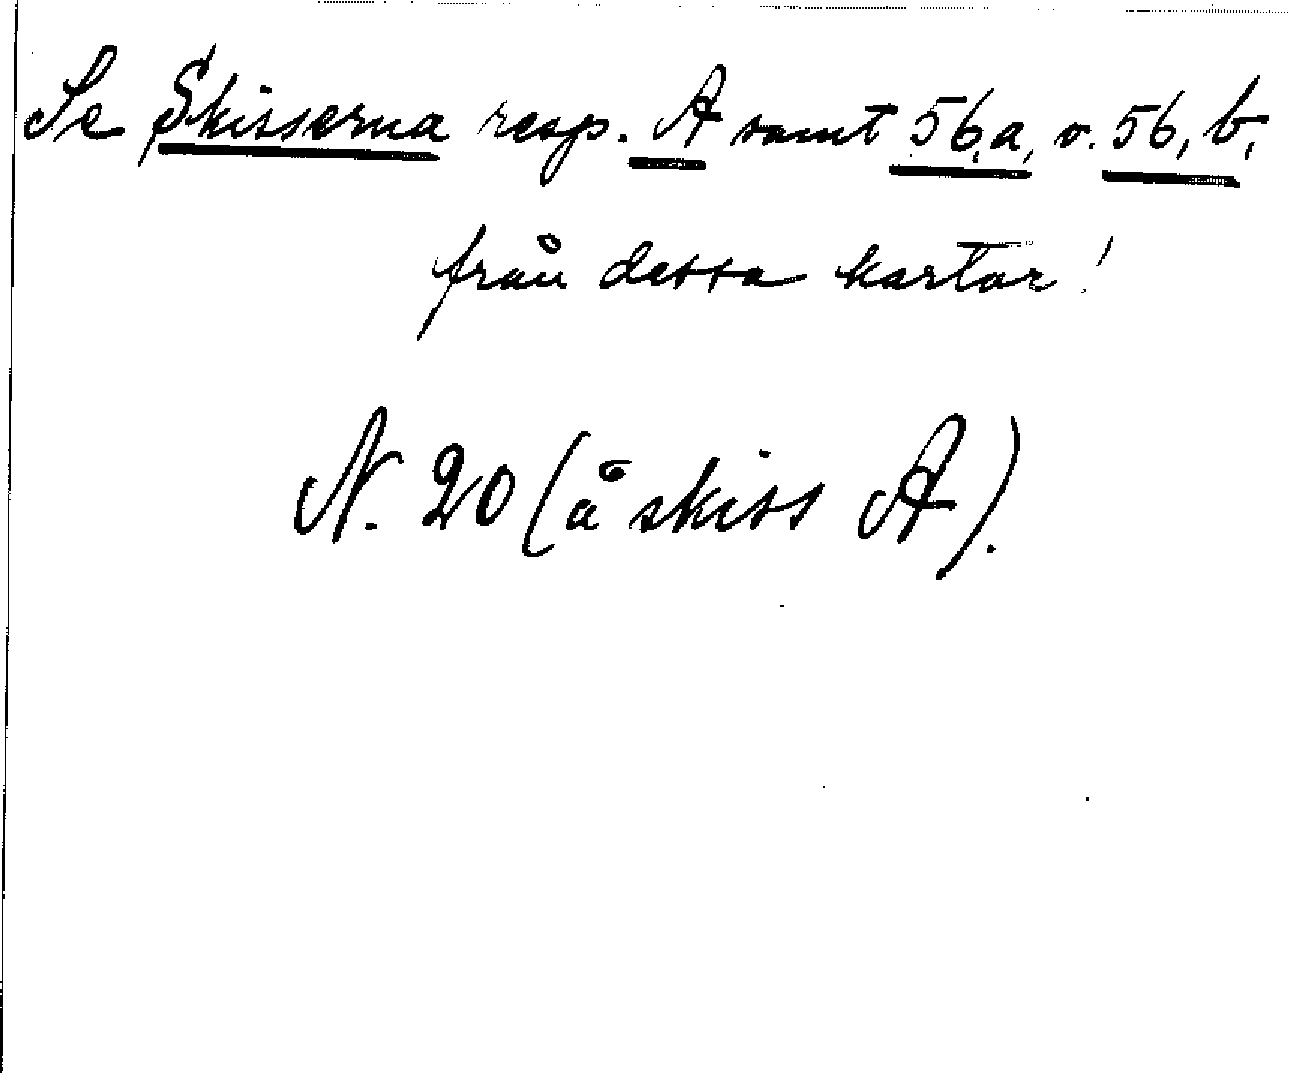 Se Skisserna resp. A samt 56,a, o. 56, b,
från dessa kartor!
N. 20 (å skiss A).